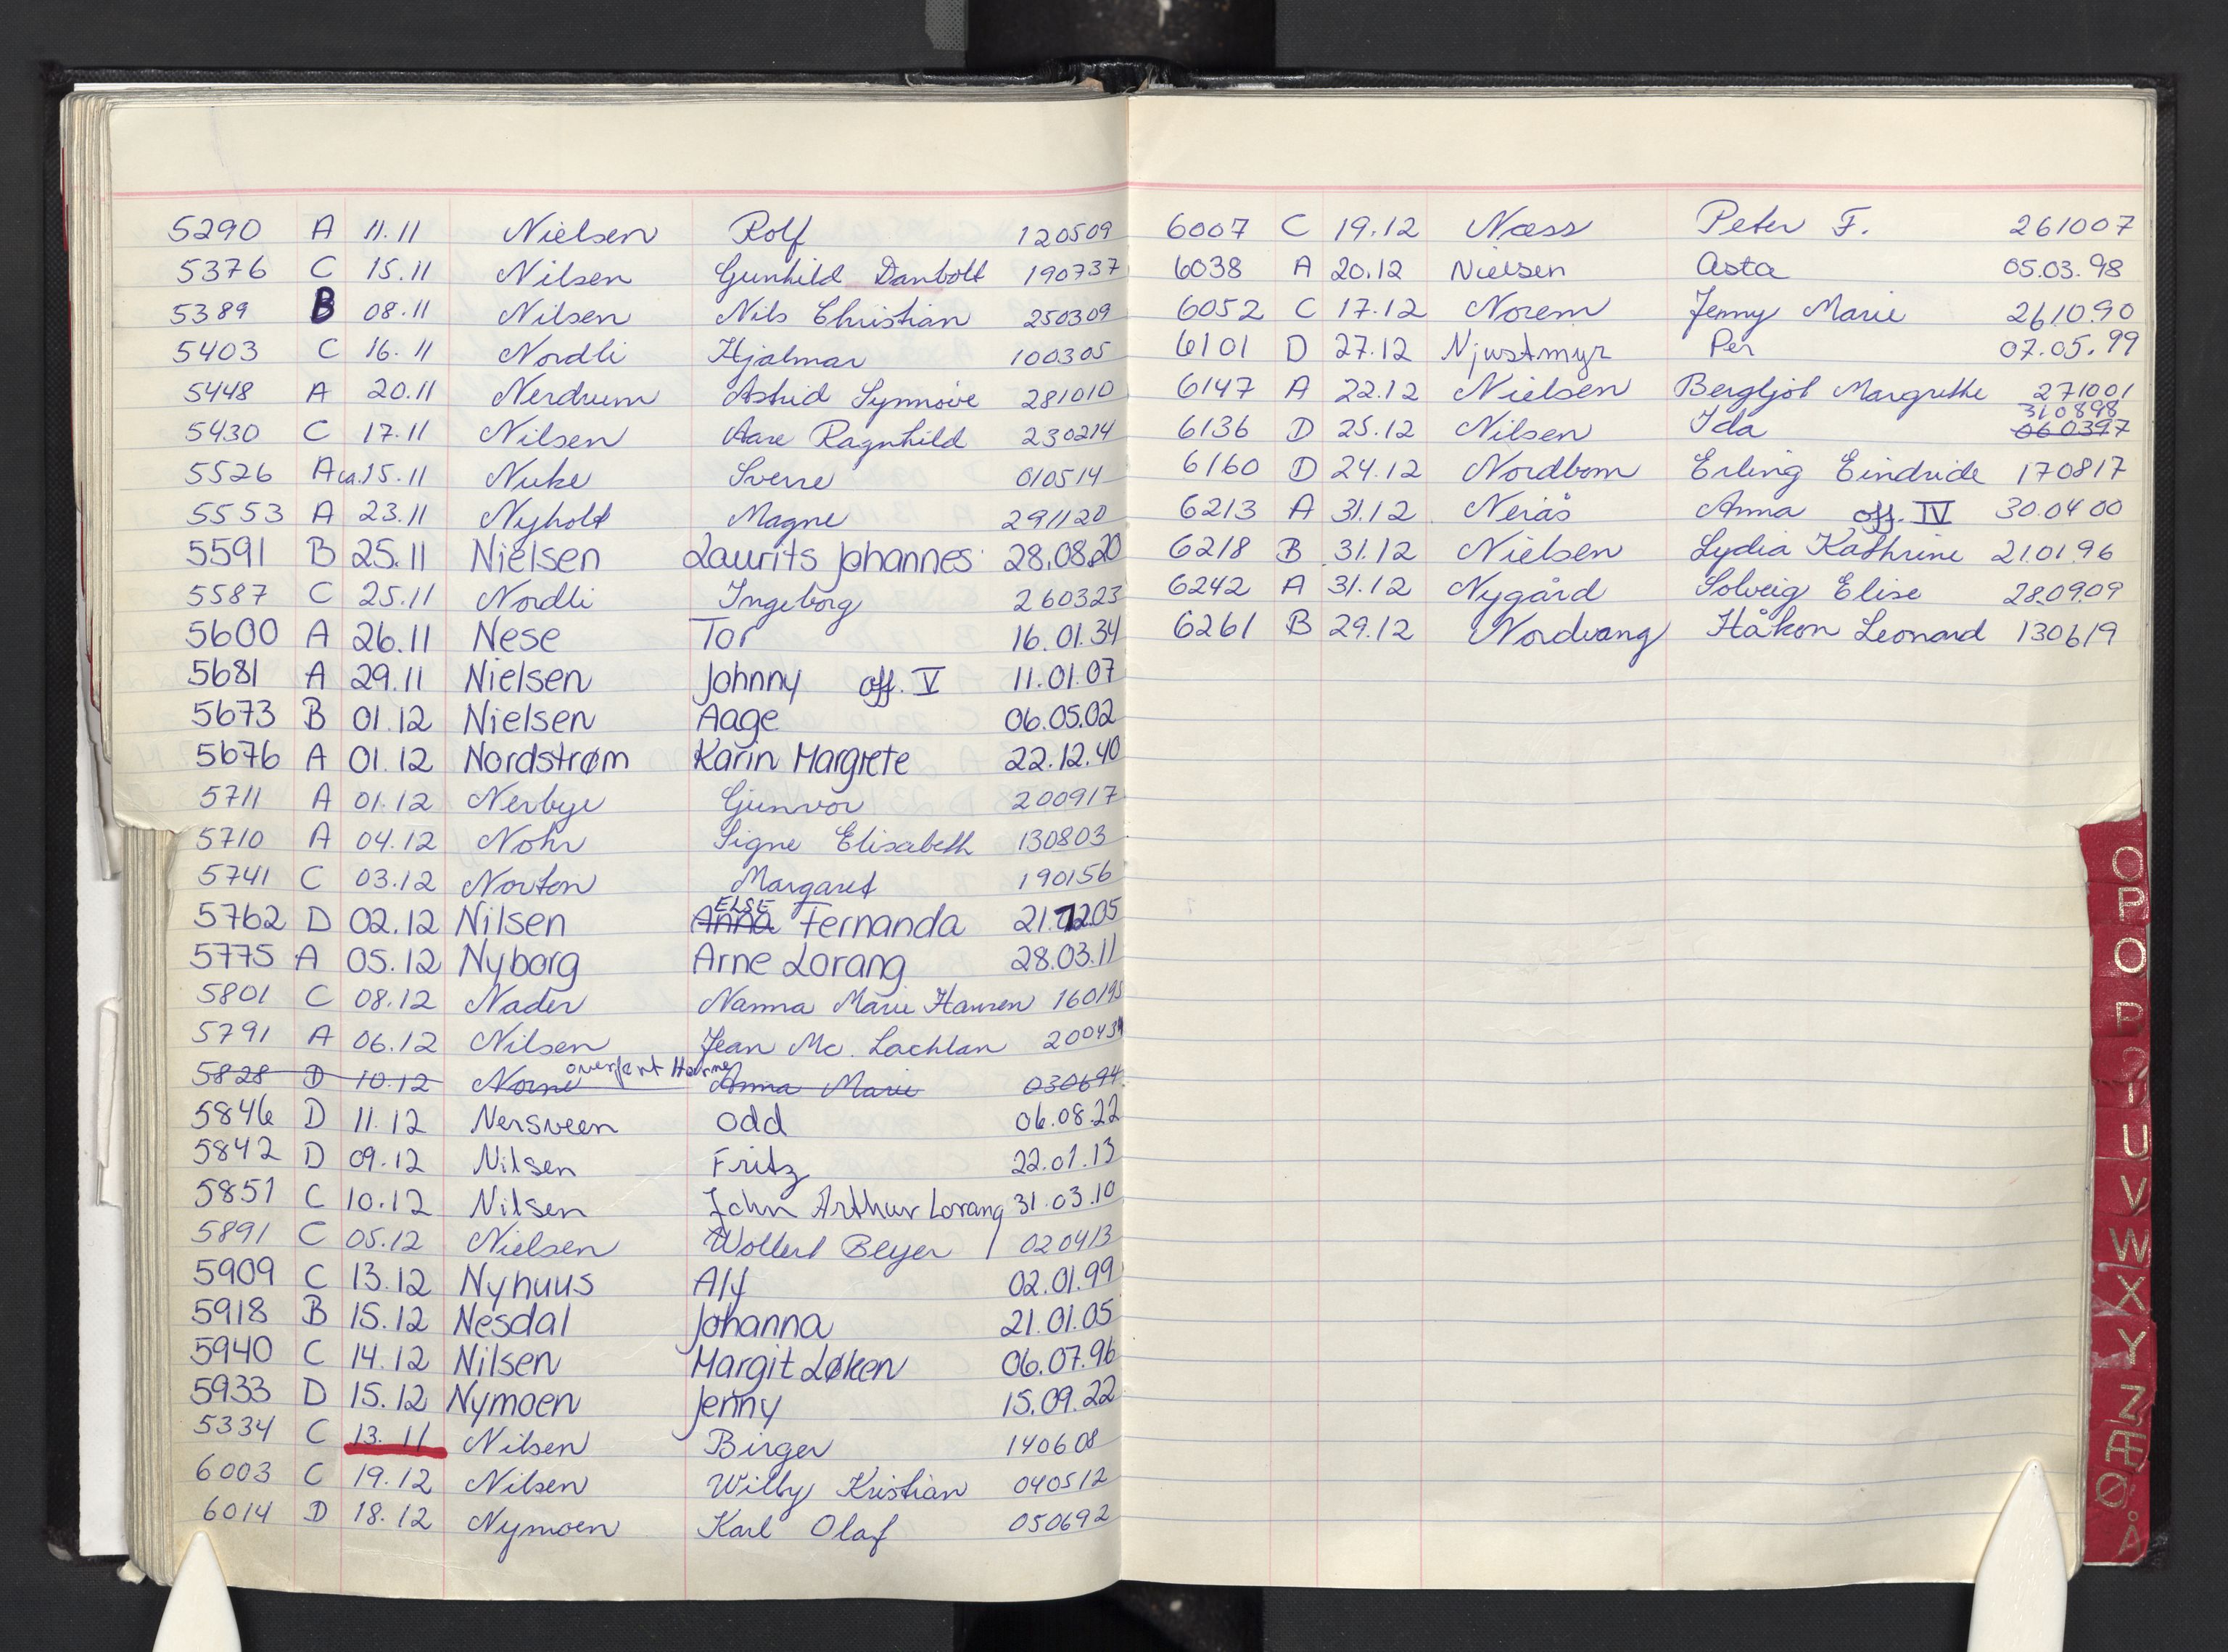 5290 A 11.11 Nielsen Rolf 120509
5376 C 15.11 Nilsen Gunhild Danbolt 190737
5389 B 08.11 Nilsen Nils Christian 250309
5403 C 16.11 Nordli Hjalmar 100305
5448 A 20.11 Nerdrum Astrid Synnøve 281010
5430 C 17.11 Nilsen Aase Ragnhild 230214
5526 A ca.15.11 Nuke Sverre 010514
5553 A 23.11 Nyholt Magne 291120
5591 B 25.11 Nielsen Laurits Johannes 28.08.20
5587 C 25.11 Nordli Ingeborg 260323
5600 A 26.11 Nese Tor 16.01.34
5681 A 29.11 Nielsen Johnny off. V 11.01.07
5673 B 01.12 Nielsen Aage 06.05.02
5676 A 01.12 Nordstrøm Karin Margrete 22.12.40
5711 A 01.12 Nerbye Gunvor 200917
5710 A 04.12 Nohr Signe Elisabeth 130803
5741 C 03.12 Norton Margaret 190156
ELSE
5762 D 02.12 Nilsen Anna Fernanda 21.12.05
5775 A 05.12 Nyborg Arne Lorang 28.03.11
5801 C 08.12 Nader Nanna Marie Hansen 160195
5791 A 06.12 Nilsen Jean Mc. Lachlan 200434
overført Horne
5828 D 10.12 Norne Anna Marie 030694
5846 D 11.12 Nersveen Odd 06.08.22
5842 D 09.12 Nilsen Fritz 22.01.13
5851 C 10.12 Nilsen John Arthur Lorang 31.03.10
5891 C 05.12 Nielsen Wollert Beyer 020413
5909 C 13.12 Nyhuus Alf 02.01.99
5918 B 15.12 Nesdal Johanna 21.01.05
5940 C 14.12 Nilsen Margit Løken 06.07.96
5933 D 15.12 Nymoen Jenny 15.09.22
5334 C 13.11 Nilsen Birger 140608
6003 C 19.12 Nilsen Willy Kristian 040512
6014 D 18.12 Nymoen Karl Olaf 050692
6007 C 19.12 Næss Peter F. 261007
6038 A 20.12 Nielsen Asta 05.03.98
6052 C 17.12 Norem Jenny Marie 261090
6101 D 27.12 Njustmyr Per 07.05.99
6147 A 22.12 Nielsen Bergljot Margrethe 271001
310898
6136 D 25.12 Nilsen Ida 060397
6160 D 24.12 Nordbom Erling Eindride 170817
6213 A 31.12 Nerås Anna off. IV 30.04 00
6218 B 31.12 Nielsen Lydia Kathrine 210196
6242 A 31.12 Nygård Solveig Elise 28.09.09
6261 B 29.12 Nordvang Håkon Leonard 130619
O
P
O
P
U
V
W
X
Y
Z
Æ
Ø
Å